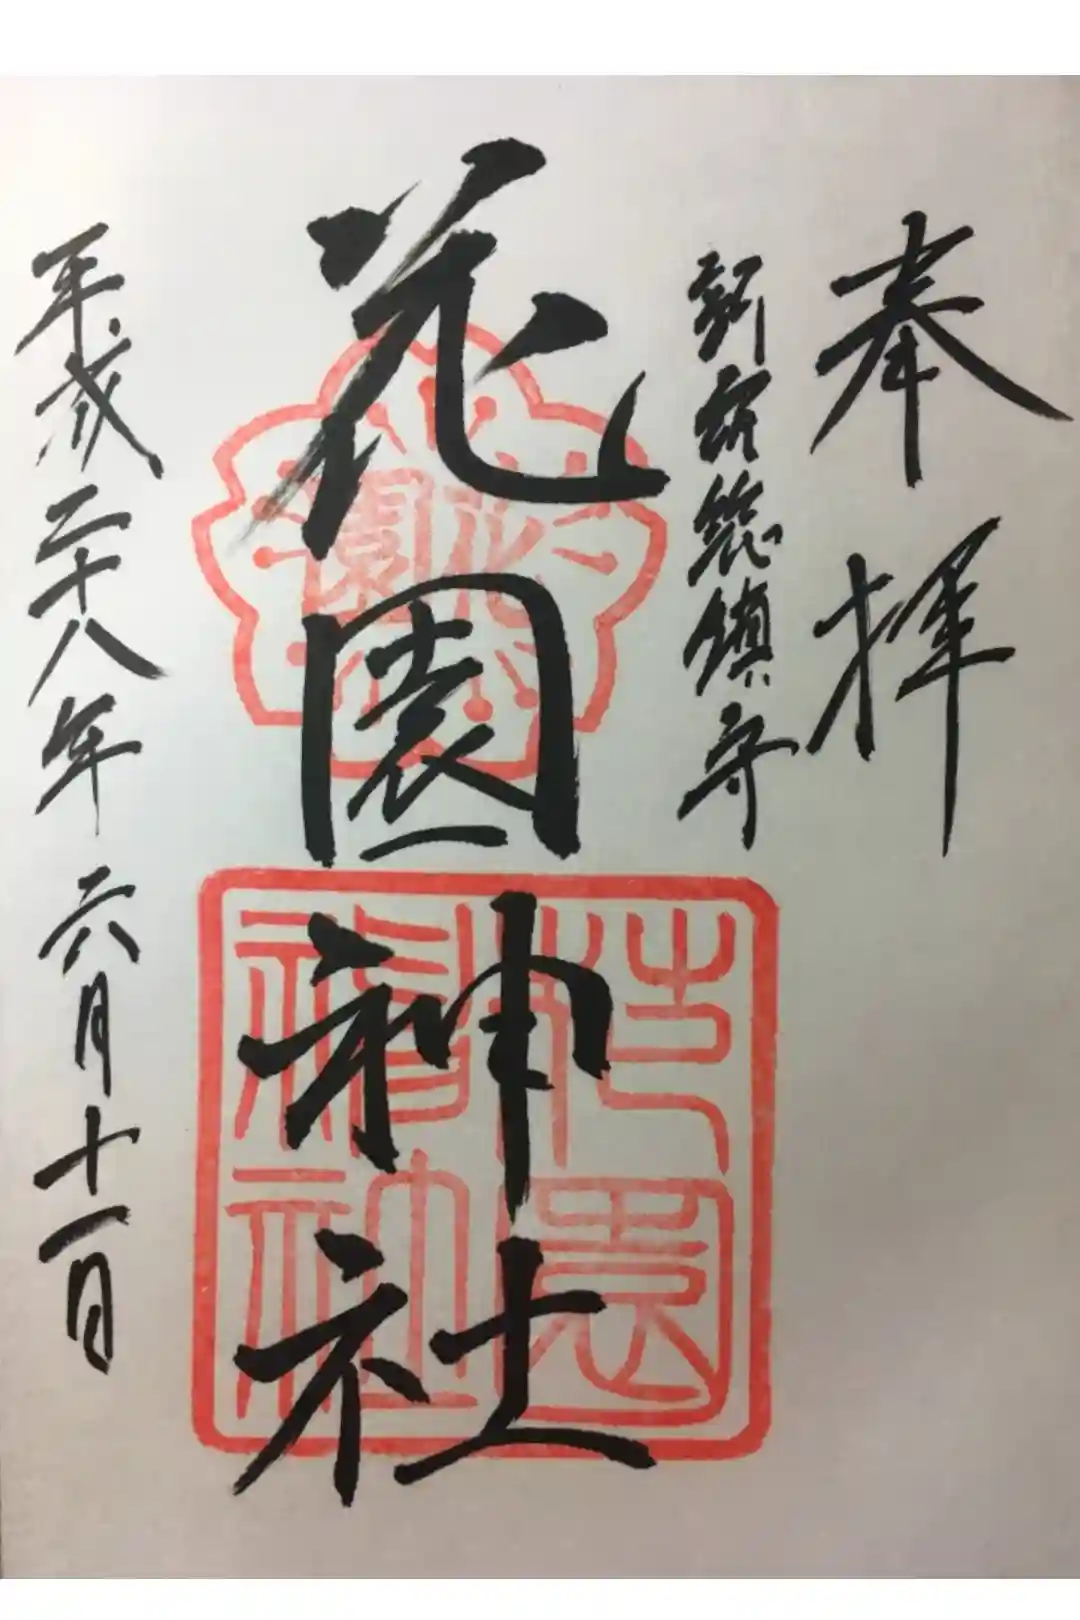 奉拝
新宿総鎮守
花園神社
平成二十八年六月十一日
花園
花園神社